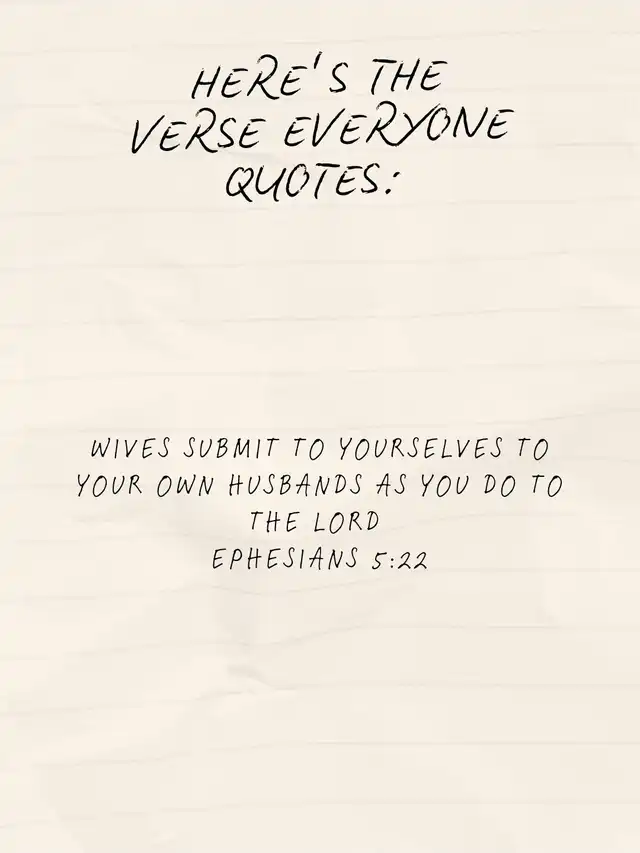 HERE'S THE
VERSE EVERYONE
QUOTES:
WIVES SUBMIT TO YOURSELVES TO
YOUR OWN HUSBANDS AS YOU DO TO
THE LORD
EPHESIANS 5:22